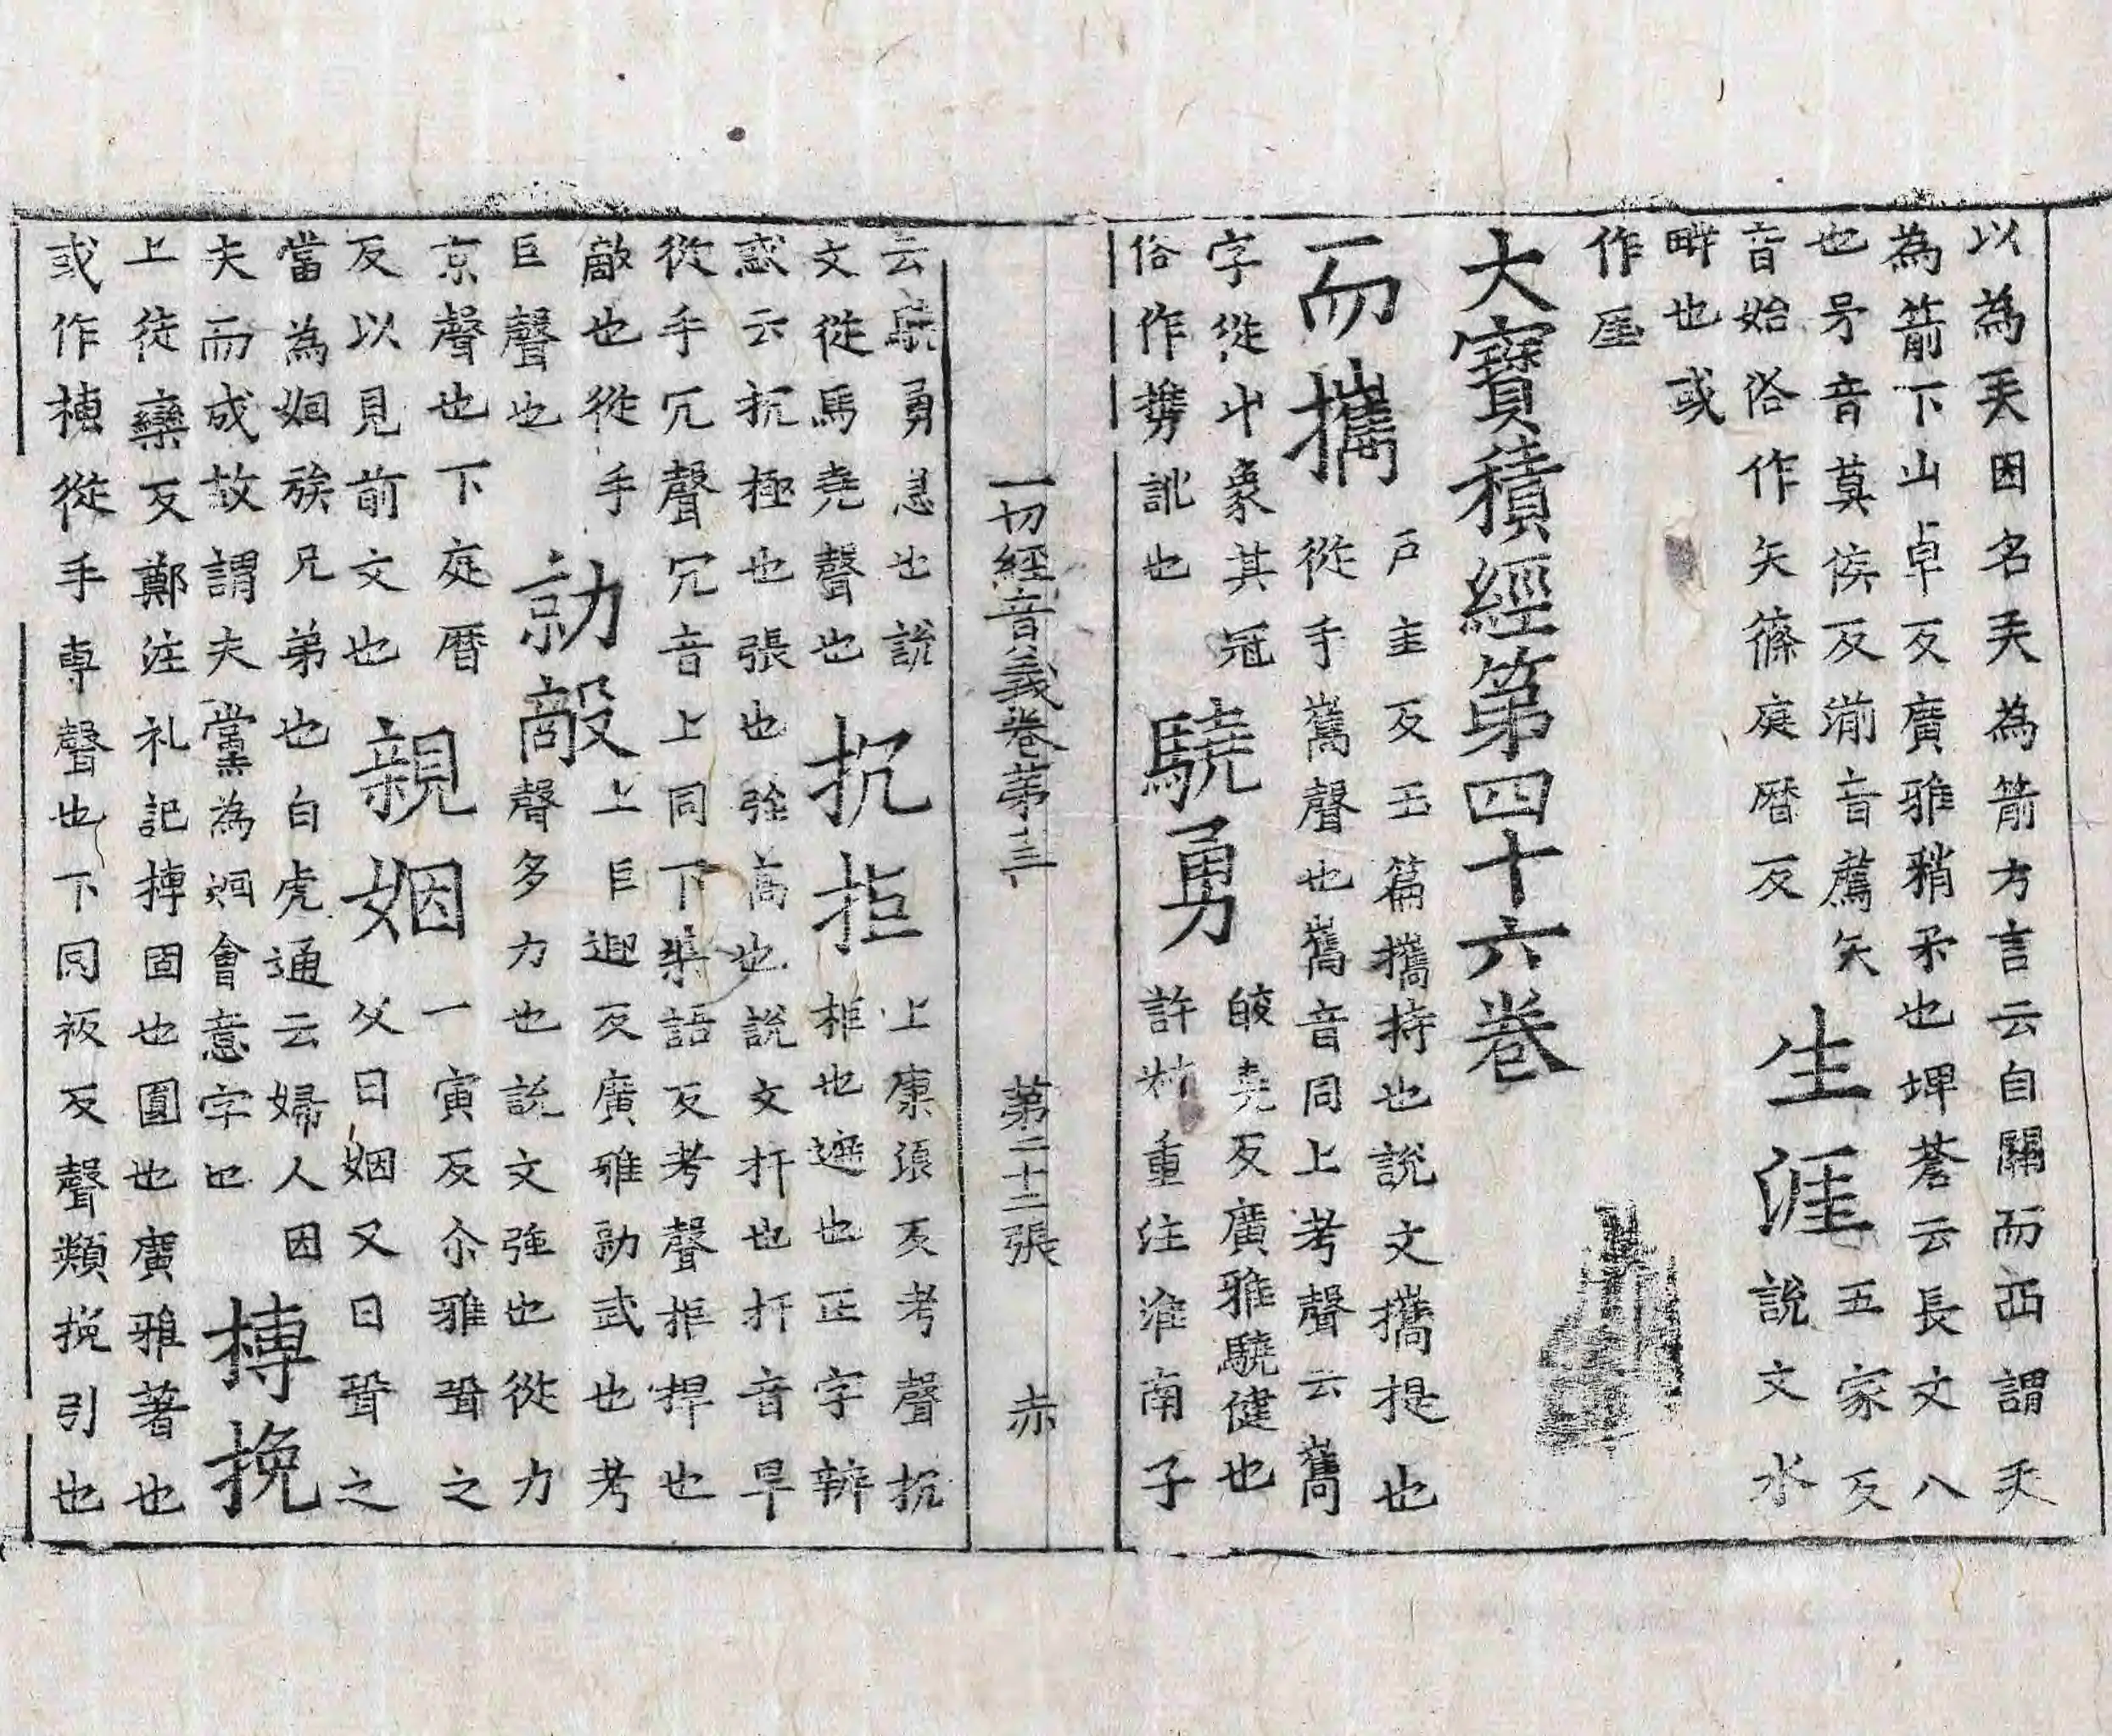 以為㺵因名㺵為箭方言云自關而西謂㺵
為箭下山卓反廣雅稍矛也埤蒼云長丈八
也矛音莫侯反湔音薦矢
音始俗作矢篠庭曆反
生涯
五家反
說文水
畔也或
作厓
大寶積經第四十六卷
而攜
戶圭反玉篇攜持也說文攜提也
從手巂聲也巂音同上考聲云巂
字從屮象其冠
俗作㩗訛也
驍勇
皎堯反廣雅驍健也
許叔重注淮南子
一切經音義卷第十三
第二十二張
赤
云驍勇急也說
文從馬堯聲也
抗拒
上康浪反考聲抗
柜也遮也正字辨
惑云抗極也張也強高也說文扞也扞音旱
從手冗聲冗音上同下渠語反考聲拒捍也
敵也從手
巨聲也
勍敵
上巨迎反廣雅勍武也考
聲多力也說文強也從力
京聲也下庭曆
反以見前文也
親姻
一寅反尒雅聟之
父曰姻又曰聟之
當為姻族兄弟也白虎通云婦人因
夫而成故謂夫黨為姻會意字也
摶挽
上徒欒反鄭注礼記摶固也圓也廣雅著也
或作摶從手專聲也下同衩反聲類挽引也